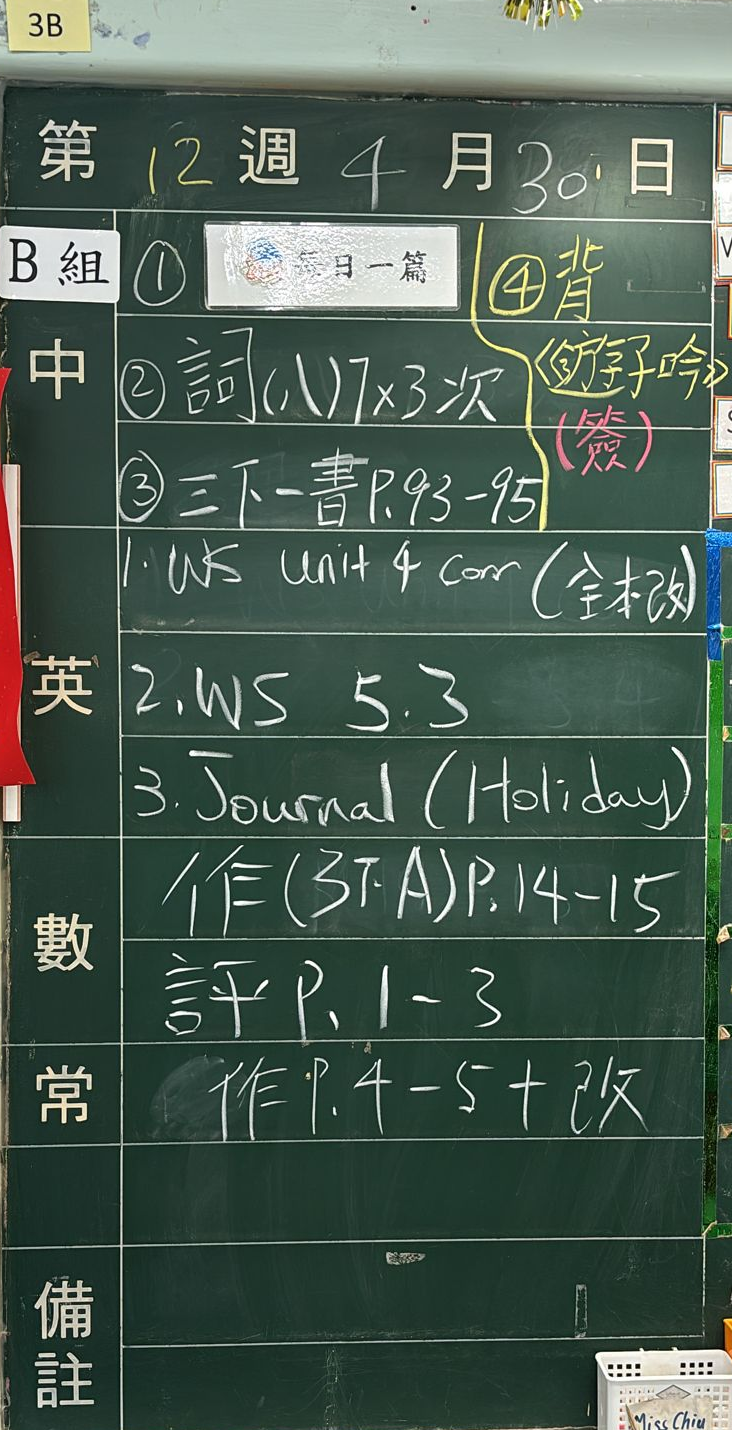 3B
第 12 週 4 月 30 日
B 組
① 每日一篇
② 詞(八)7x3次
③ 三下一書P.93-95
④背
《遊子吟》
(簽)
中
1. WS Unit 4 corr (全本改)
英
2. WS 5.3
3. Journal (Holiday)
數
作(3下A)P.14-15
評 P. 1-3
常
作P.4-5+改
備註
Miss Chiu